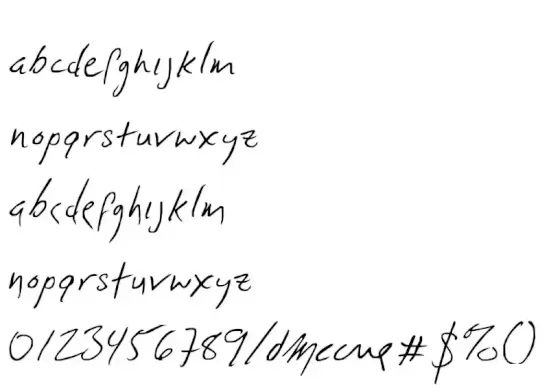 abcdefghijklm
nopqrstuvwxyz
abcdefghijklm
nopqrstuvwxyz
0123456789/ #$%()